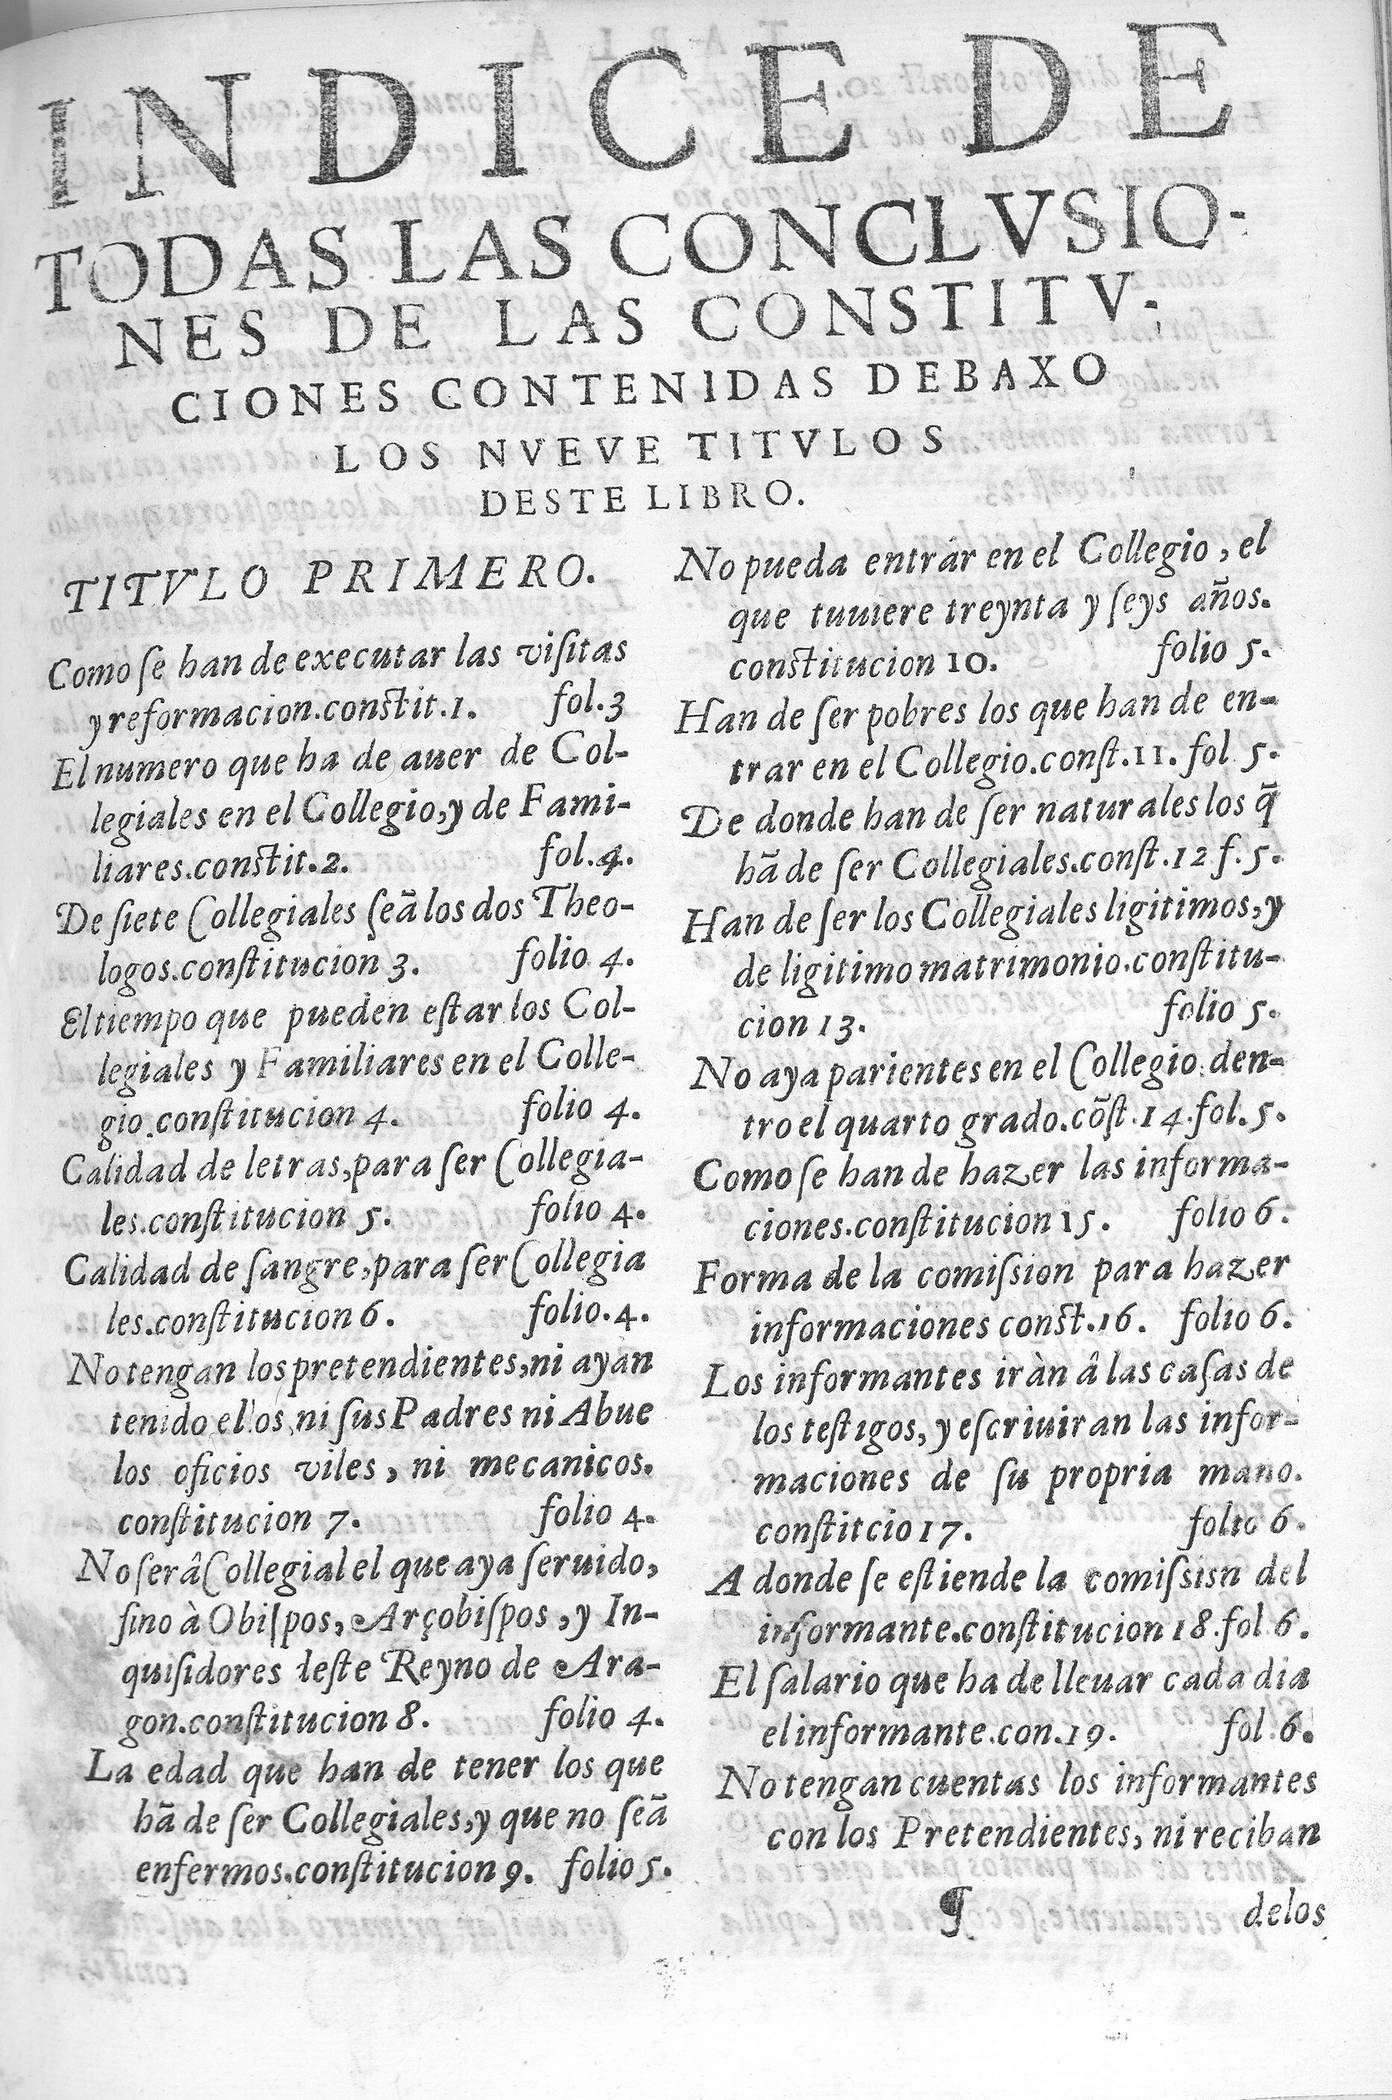 INDICE DE
TODAS LAS CONCLVSIO-
NES DE LAS CONSTITV-
CIONES CONTENIDAS DEBAXO
LOS NVEVE TITVLOS
DESTE LIBRO.
TITVLO PRIMERO.
Como ſe han de executar las viſitas
y reformacion.conſtit.1. fol.3
El numero que ha de auer de Col-
legiales en el Collegio,y de Fami-
liares.conſtit.2. fol.4.
De ſiete Collegiales ſeã los dos Theo-
logos.conſtitucion 3. folio 4.
El tiempo que pueden eſtar los Col-
legiales y Familiares en el Colle-
gio.conſtitucion 4. folio 4.
Calidad de letras,para ſer Collegia-
les.conſtitucion 5. folio 4.
Calidad de ſangre,para ſer Collegia
les.conſtitucion 6. folio.4.
No tengan los pretendientes,ni ayan
tenido ellos,ni ſus Padres ni Abue
los oficios viles, ni mecanicos.
conſtitucion 7. folio 4.
No ſerâ Collegial el que aya ſeruido,
ſino à Obiſpos, Arçobiſpos ,y In-
quiſidores deſte Reyno de Ara-
gon.conſtitucion 8. folio 4.
La edad que han de tener los que
hã de ſer Collegiales,y que no ſeã
enfermos.conſtitucion 9. folio 5.
No pueda entrâr en el Collegio , el
que tuuiere treynta y ſeys años.
conſtitucion 10. folio 5.
Han de ſer pobres los que han de en-
trar en el Collegio.conſt.11. fol 5.
De donde han de ſer naturales los q̃
hã de ſer Collegiales.conſt.12 f.5.
Han de ſer los Collegiales ligitimos,y
de ligitimo matrimonio.conſtitu-
cion 13. folio 5.
No aya parientes en el Collegio den-
tro el quarto grado.cõſt.14.fol.5.
Como ſe han de hazer las informa-
ciones.conſtitucion 15. folio 6.
Forma de la comiſsion para hazer
informaciones conſt.16. folio 6.
Los informantes iràn â las caſas de
los teſtigos, y eſcriuiran las infor-
maciones de ſu propria mano.
conſtitcio 17. folio 6.
A donde ſe eſtiende la comiſsisn del
informante.conſtitucion 18.fol 6.
El ſalario que ha de lleuar cada dia
el informante.con.19. fol.6.
No tengan cuentas los informantes
con los Pretendientes, ni reciban
¶ delos